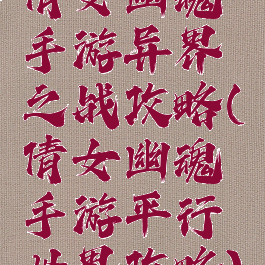 倩女幽魂
手游异界
之战攻略(
倩女幽魂
手游平行
世界攻略)